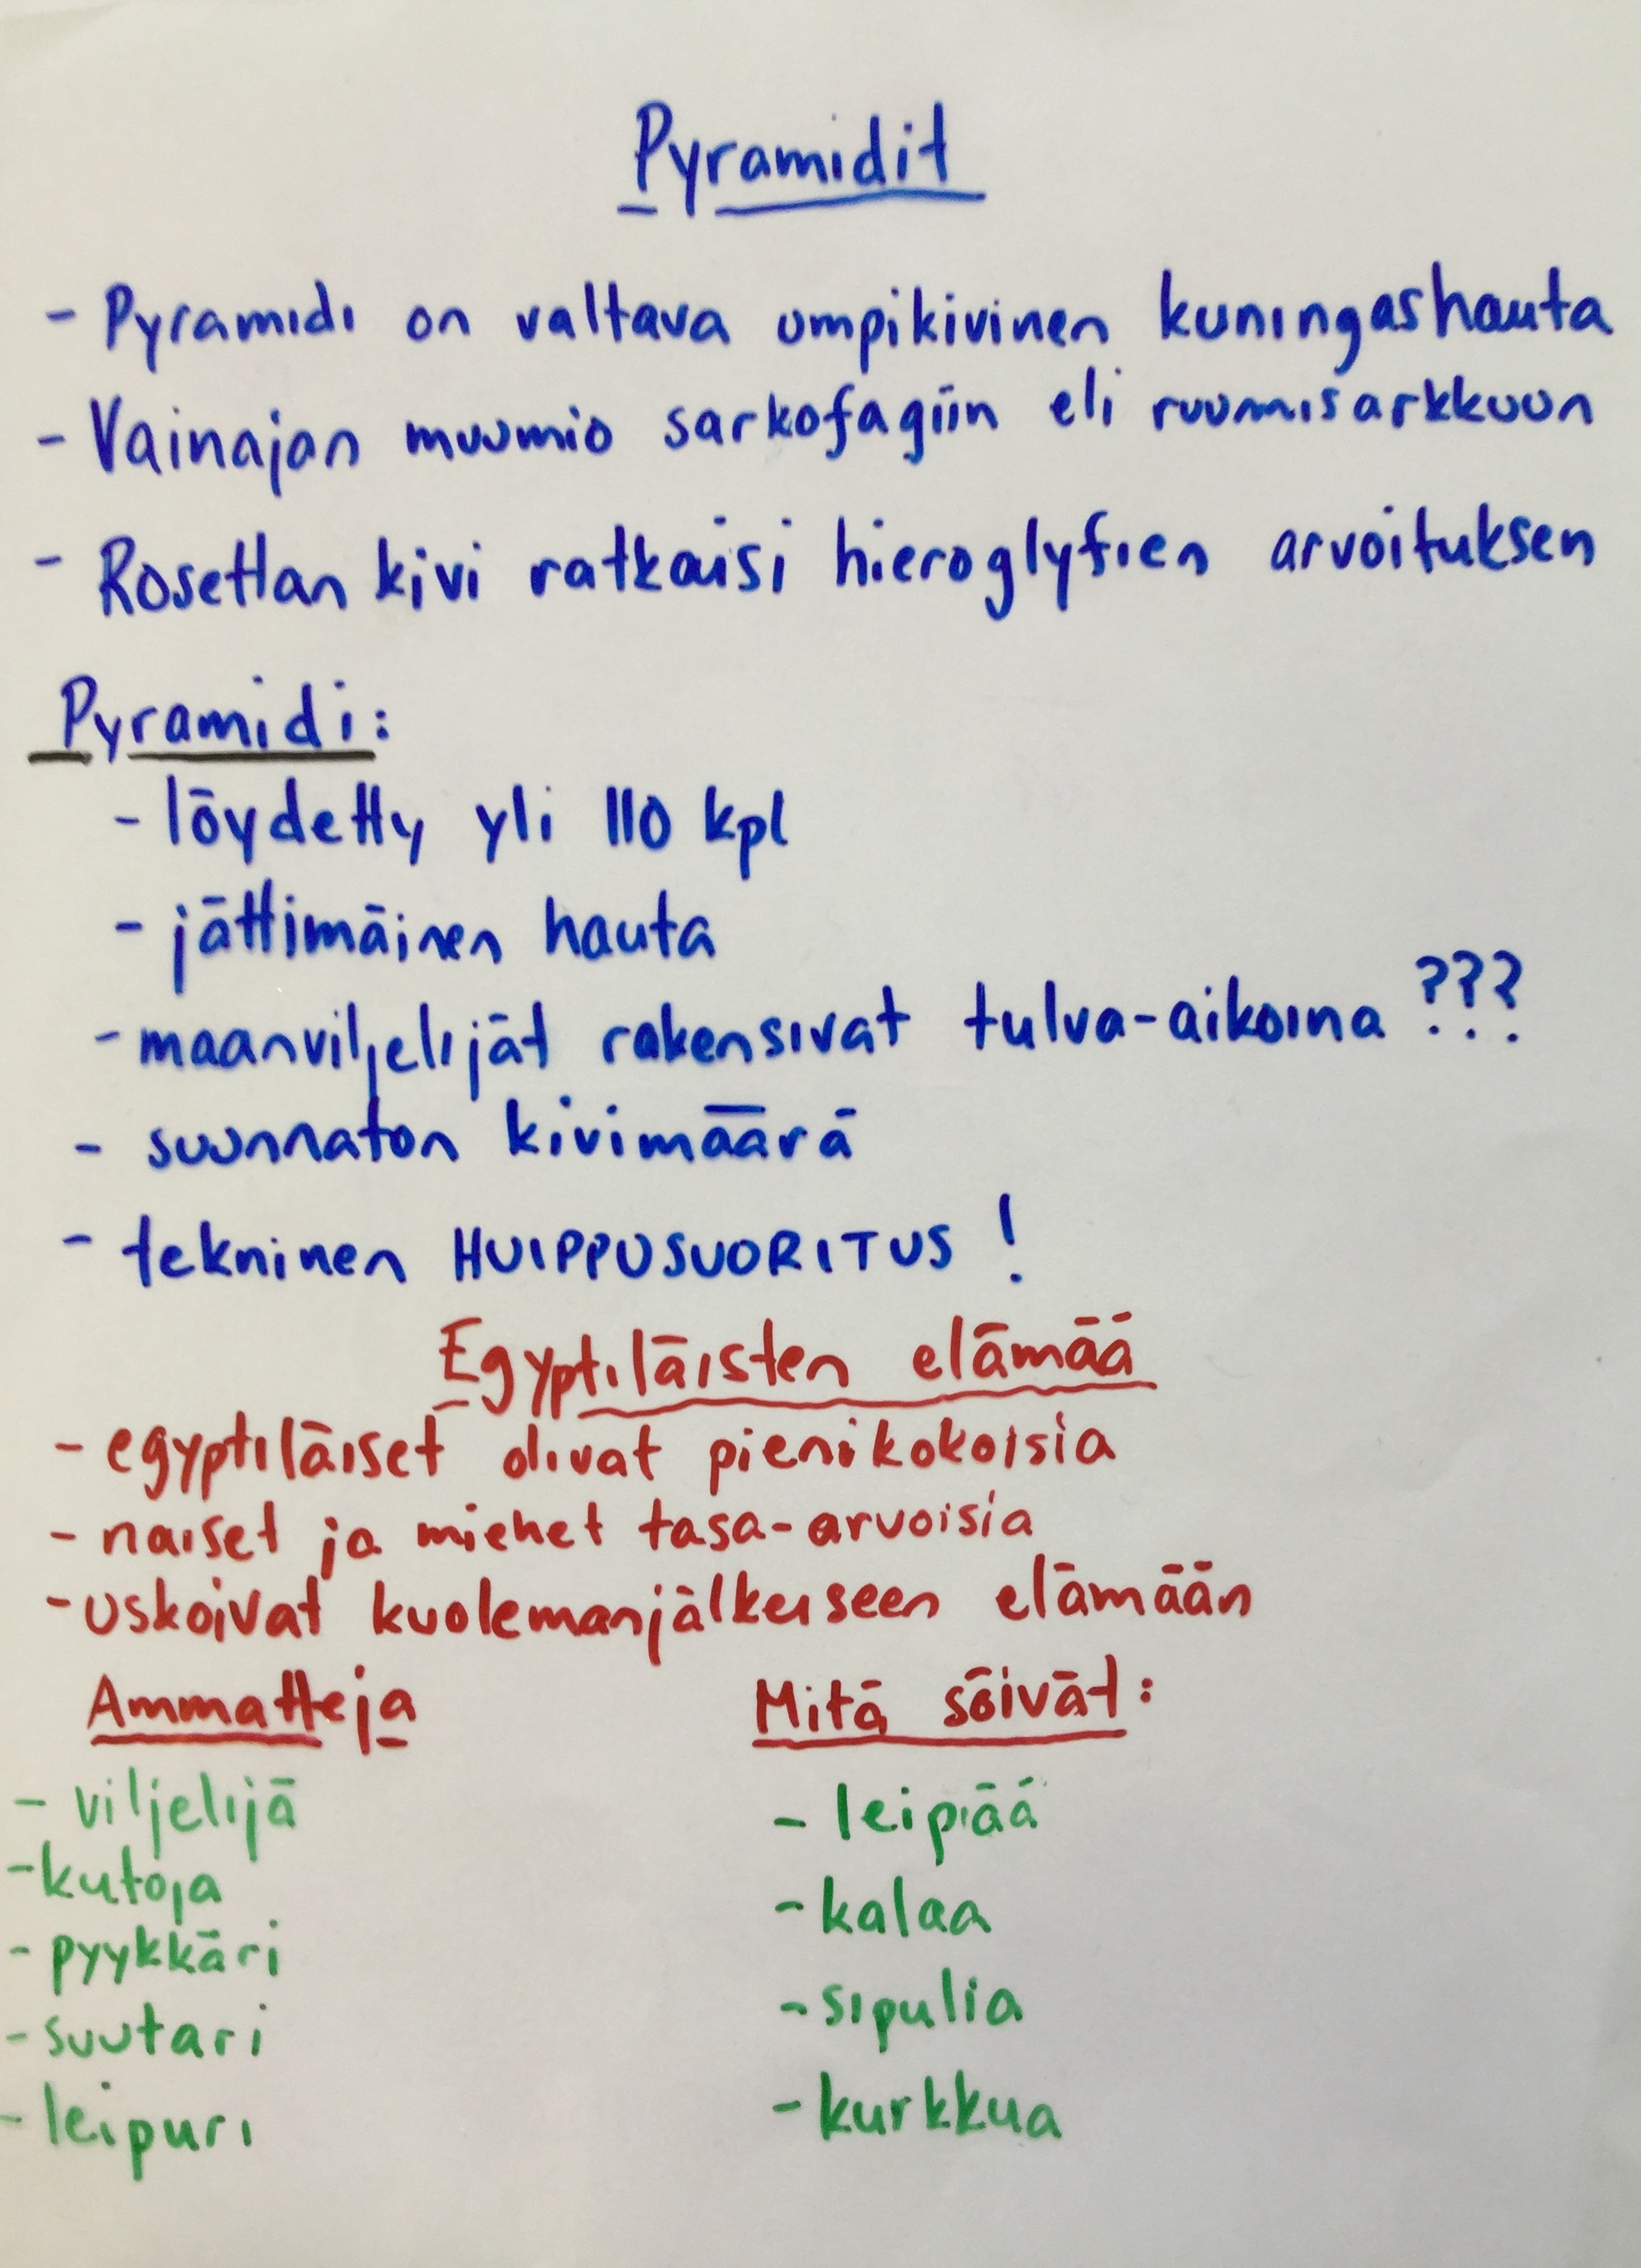 Pyramidit
- Pyramidi on valtava umpikivinen kuningashauta
- Vainajan muumio sarkofagiin eli ruumisarkkuun
- Rosettan kivi ratkaisi hieroglyfien arvoituksen
Pyramidi:
- löydetty yli 110 kpl
- jättimäinen hauta
- maanviljelijät rakensivat tulva-aikoina ???
- suunnaton kivimäärä
- tekninen HUIPPUSUORITUS !
Egyptiläisten elämää
- egyptiläiset olivat pienikokoisia
- naiset ja miehet tasa-arvoisia
- uskoivat kuolemanjälkeiseen elämään
Ammatteja
- viljelijä
- kutoja
- pyykkäri
- suutari
- leipuri
Mitä söivät:
- leipää
- kalaa
- sipulia
- kurkkua